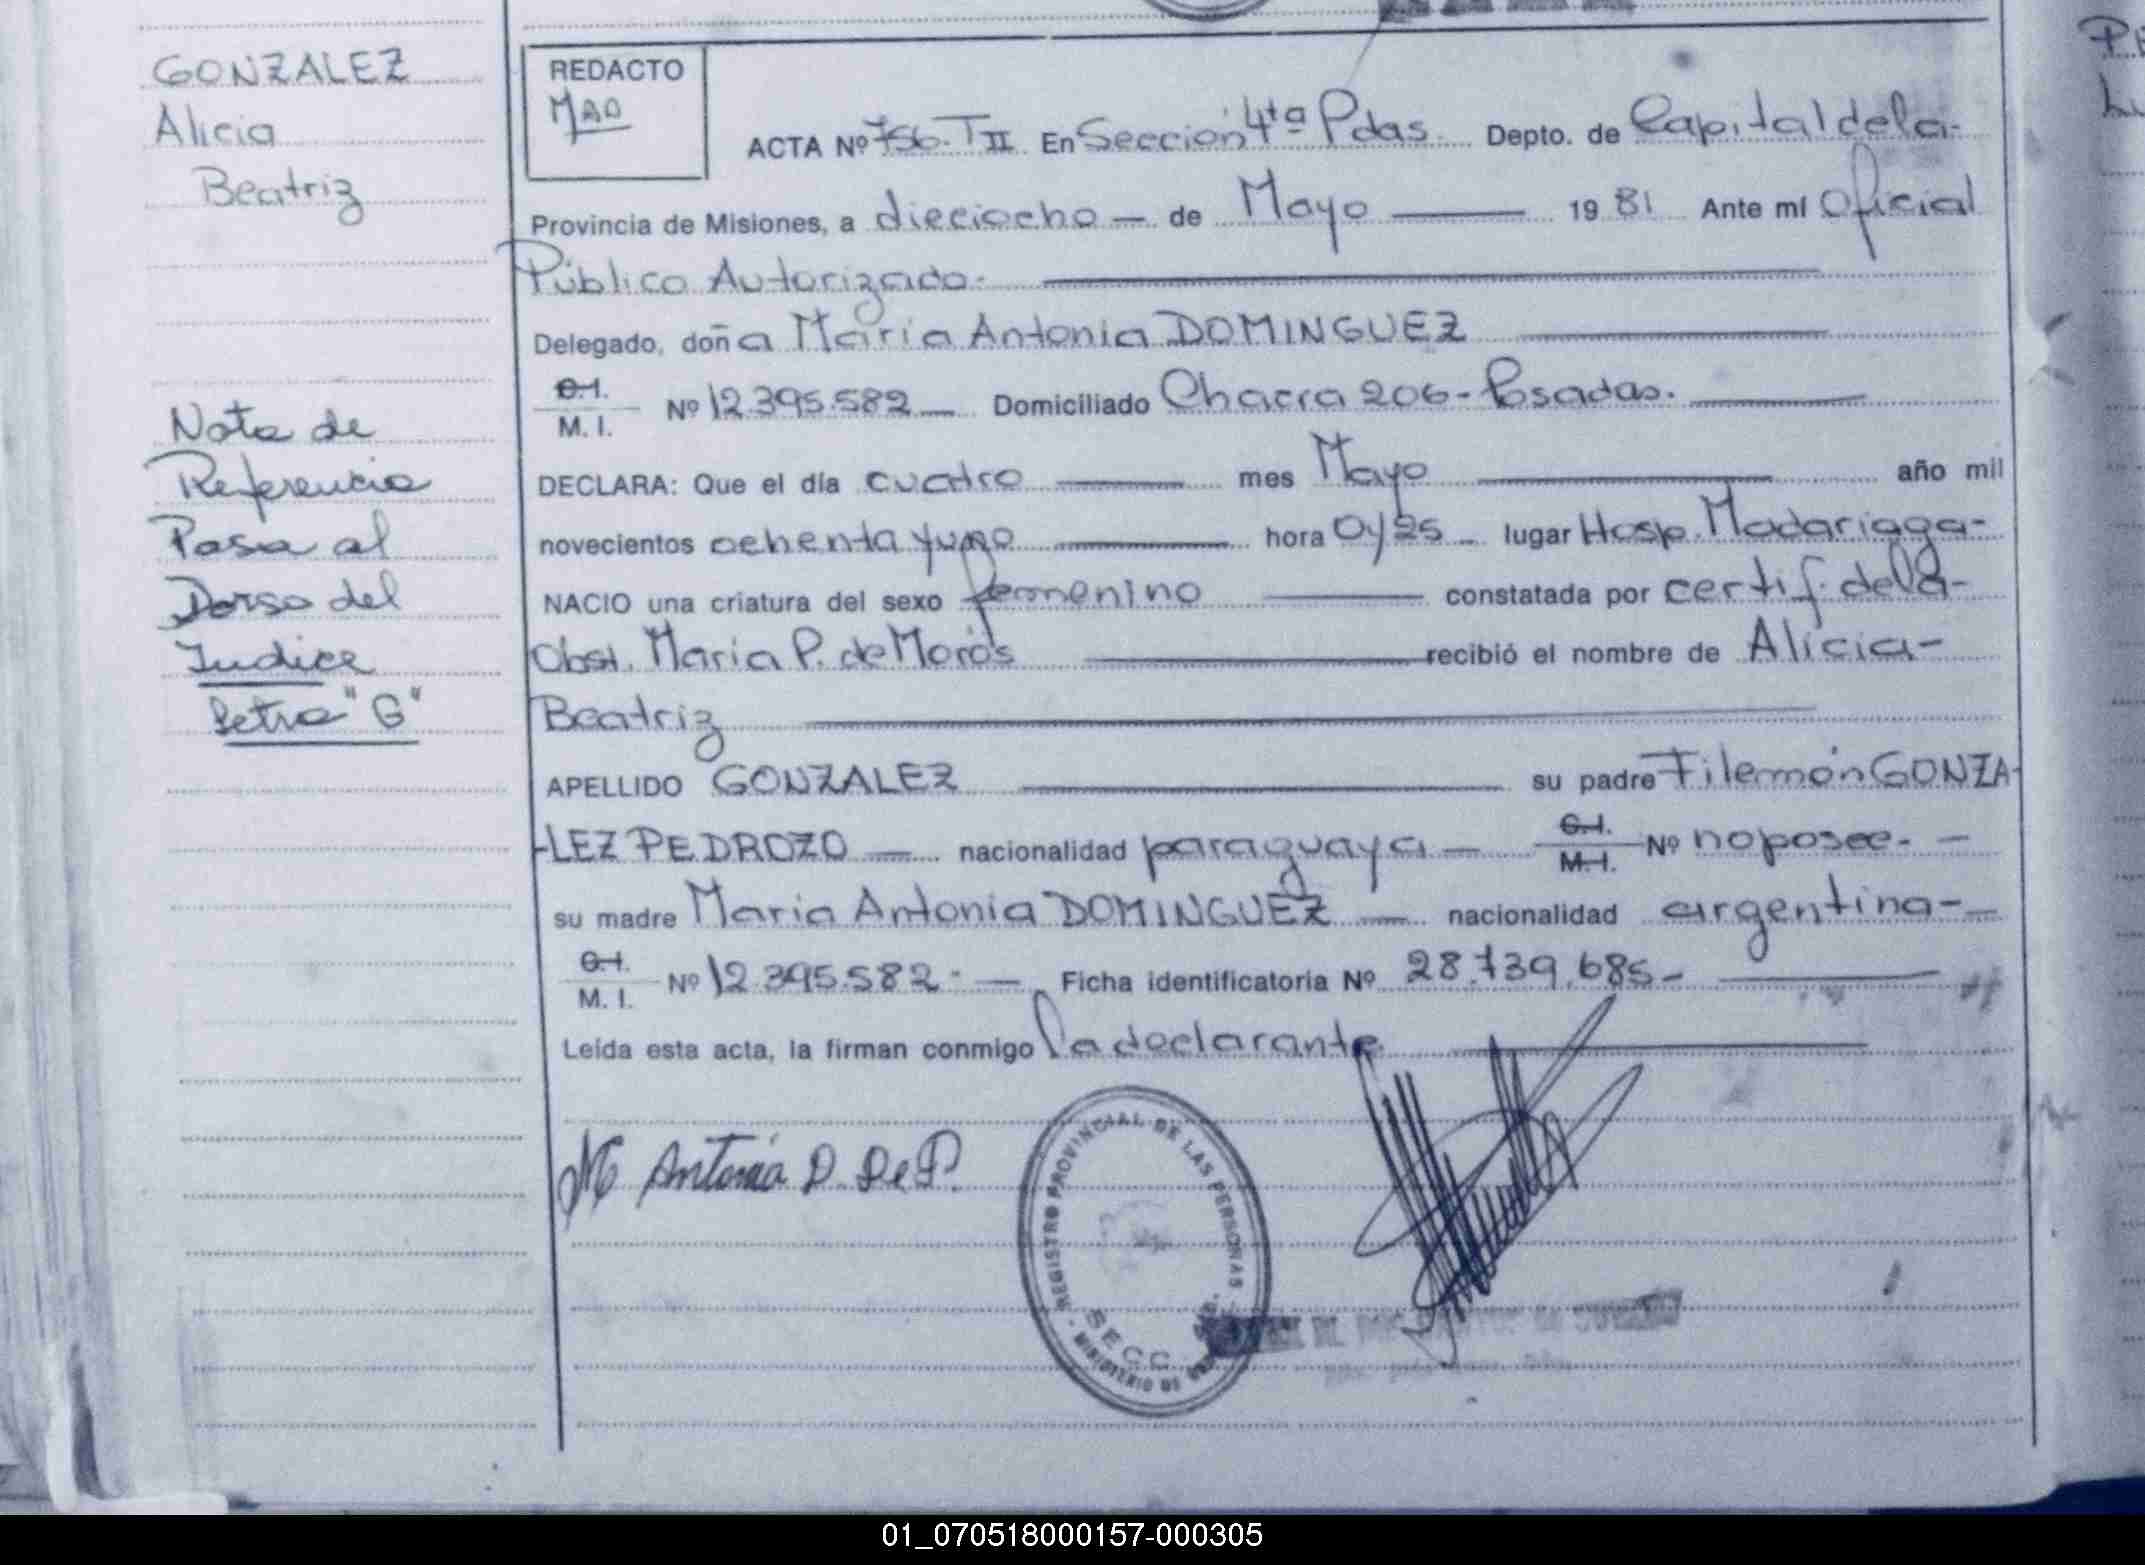 GONZALEZ
Alicia
Beatriz
Nota de
Referencia
Pasa al
Dorso del
Indice
Letra "G"
REDACTO
MAD
ACTA Nº 756. T II En Sección 4ta Pdas. Depto. de Capital de la-
Provincia de Misiones, a dieciocho — de Mayo — 19 81 Ante mí Oficial
Público Autorizado-
Delegado, doña María Antonia DOMINGUEZ
C.I.
M. I. Nº 12.395.582 — Domiciliado Chacra 206 - Posadas.
DECLARA: Que el día cuatro — mes Mayo — año mil
novecientos ochenta y uno — hora 0y25 — lugar Hosp. Madariaga-
NACIO una criatura del sexo femenino — constatada por certif. de la-
Obst. María P. de Morós — recibió el nombre de Alicia-
Beatriz
APELLIDO GONZALEZ — su padre Filemón GONZA-
-LEZ PEDROZO — nacionalidad paraguaya — C.I.
M.I. Nº no posee. —
su madre María Antonia DOMINGUEZ — nacionalidad argentina-
C.I.
M. I. Nº 12.395.582 - — Ficha identificatoria Nº 28.739.685-
Leída esta acta, la firman conmigo la declarante
M Antonia D. De P.
REGISTRO PROVINCIAL DE LAS PERSONAS
SECC
MINISTERIO DE
01_070518000157-000305